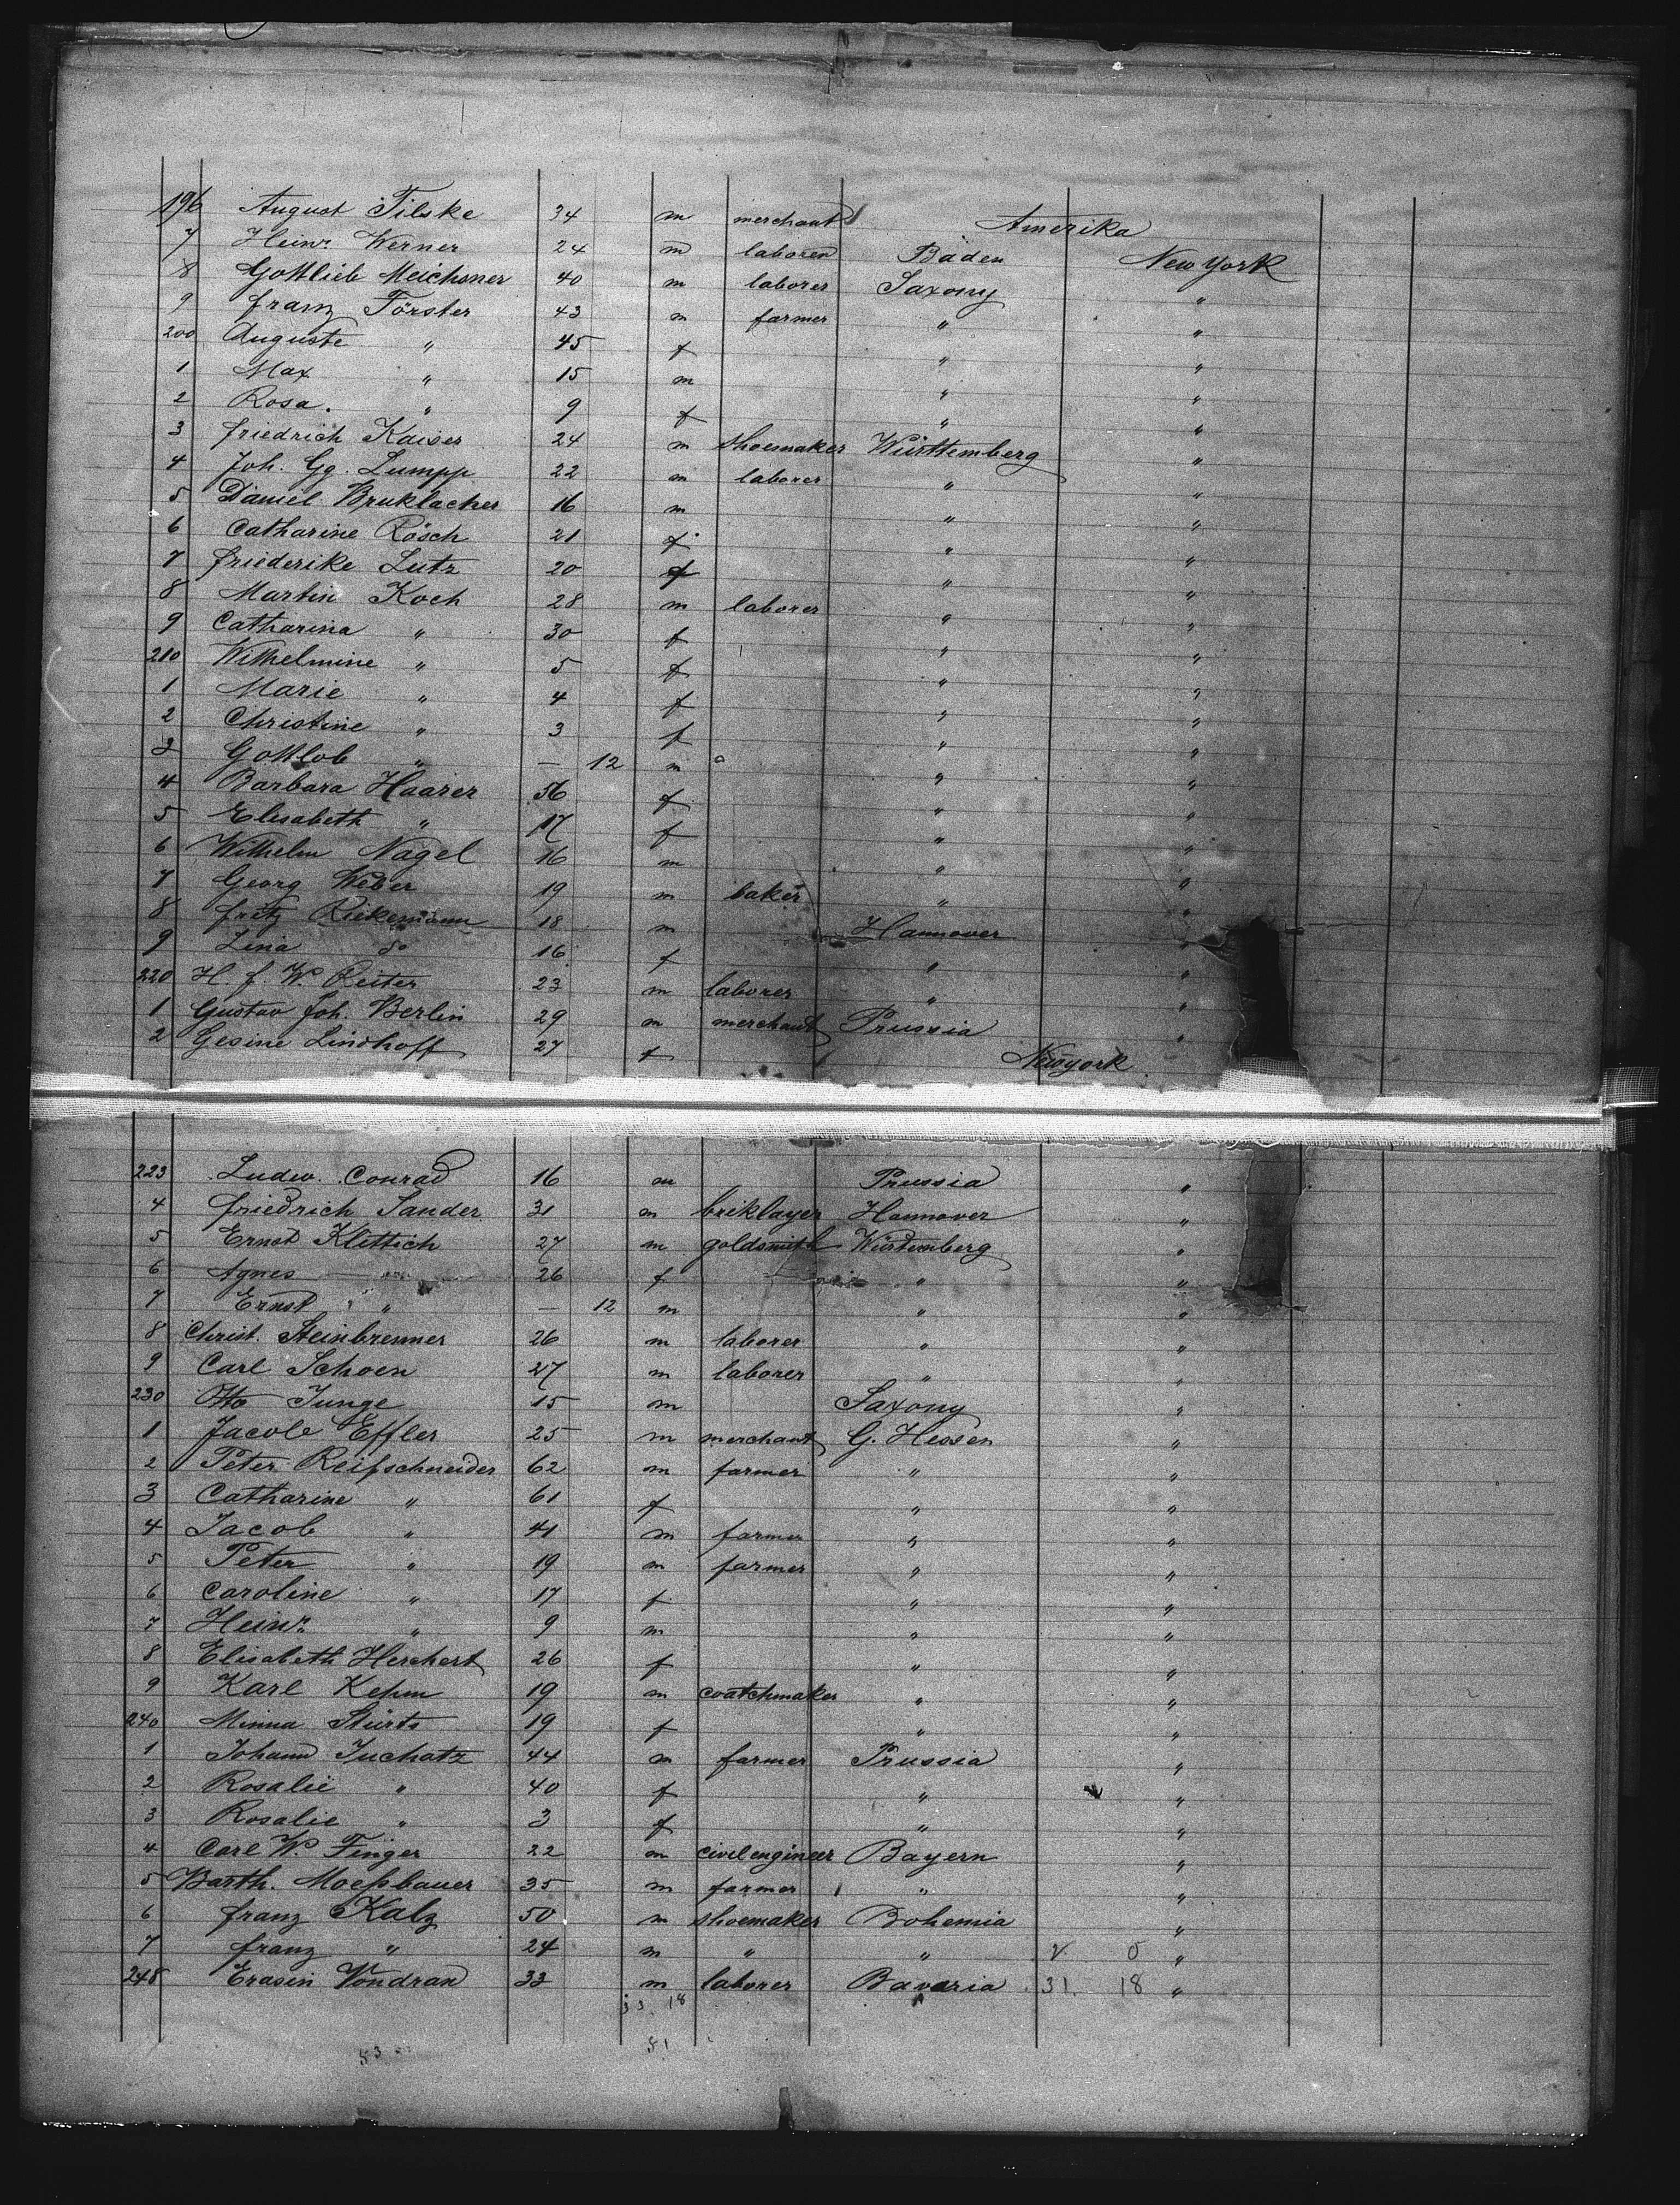 196 August Tilske 34 m merchant Amerika
7 Heinr. Werner 24 m laborer Baden New York
8 Gottlieb Meichsner 40 m laborer Saxony "
9 Franz Förster 43 m farmer " "
200 Auguste " 45 f " "
1 Max " 15 m " "
2 Rosa. " 9 f " "
3 Friedrich Kaiser 24 m shoemaker Württemberg "
4 Joh. Gg. Lumpp 22 m laborer " "
5 Daniel Bruklacher 16 m " "
6 Catharine Rösch 21 f " "
7 Friederike Lutz 20 f " "
8 Martin Koch 28 m laborer " "
9 Catharina " 30 f " "
210 Wilhelmine " 5 f " "
1 Marie " 4 f " "
2 Christine " 3 f " "
3 Gottlob " — 12 m " "
4 Barbara Haarer 56 f " "
5 Elisabeth " 17 f " "
6 Wilhelm Nagel 16 m " "
7 Georg Weber 19 m baker " "
8 Fritz Riekemann 18 m Hannover "
9 Lina do 16 f " "
220 H. F. W. Reiter 23 m laborer " "
1 Gustav Joh. Berlin 29 m merchant Prussia "
2 Gesine Lindhoff 27 f Newyork
223 Ludw. Conrad 16 m Prussia "
4 Friedrich Sander 31 m briklayer Hannover "
5 Ernst Klittich 27 m goldsmith Würtemberg "
6 Agnes 26 f " "
7 Ernst " — 12 m " "
8 Christ. Steinbrenner 26 m laborer " "
9 Carl Schoen 27 m laborer " "
230 Otto Junge 15 m Saxony "
1 Jacob Effler 25 m merchant G. Hessen "
2 Peter Reifschneider 62 m farmer " "
3 Catharine " 61 f " "
4 Jacob " 41 m farmer " "
5 Peter " 19 m farmer " "
6 Caroline " 17 f " "
7 Heinr. " 9 m " "
8 Elisabeth Herchert 26 f " "
9 Karl Kehm 19 m coatchmaker " "
240 Minna Stürts 19 f " "
1 Johann Juchatz 44 m farmer Prussia "
2 Rosalie " 40 f " "
3 Rosalie " 3 f " "
4 Carl W. Finger 22 m civilengineer Bayern "
5 Barth. Moeßbauer 35 m farmer " "
6 Franz Kalz 50 m shoemaker Bohemia "
7 Franz " 24 m " " "
248 Erasin Vondran 33 m laborer Bavaria 31. 18 "